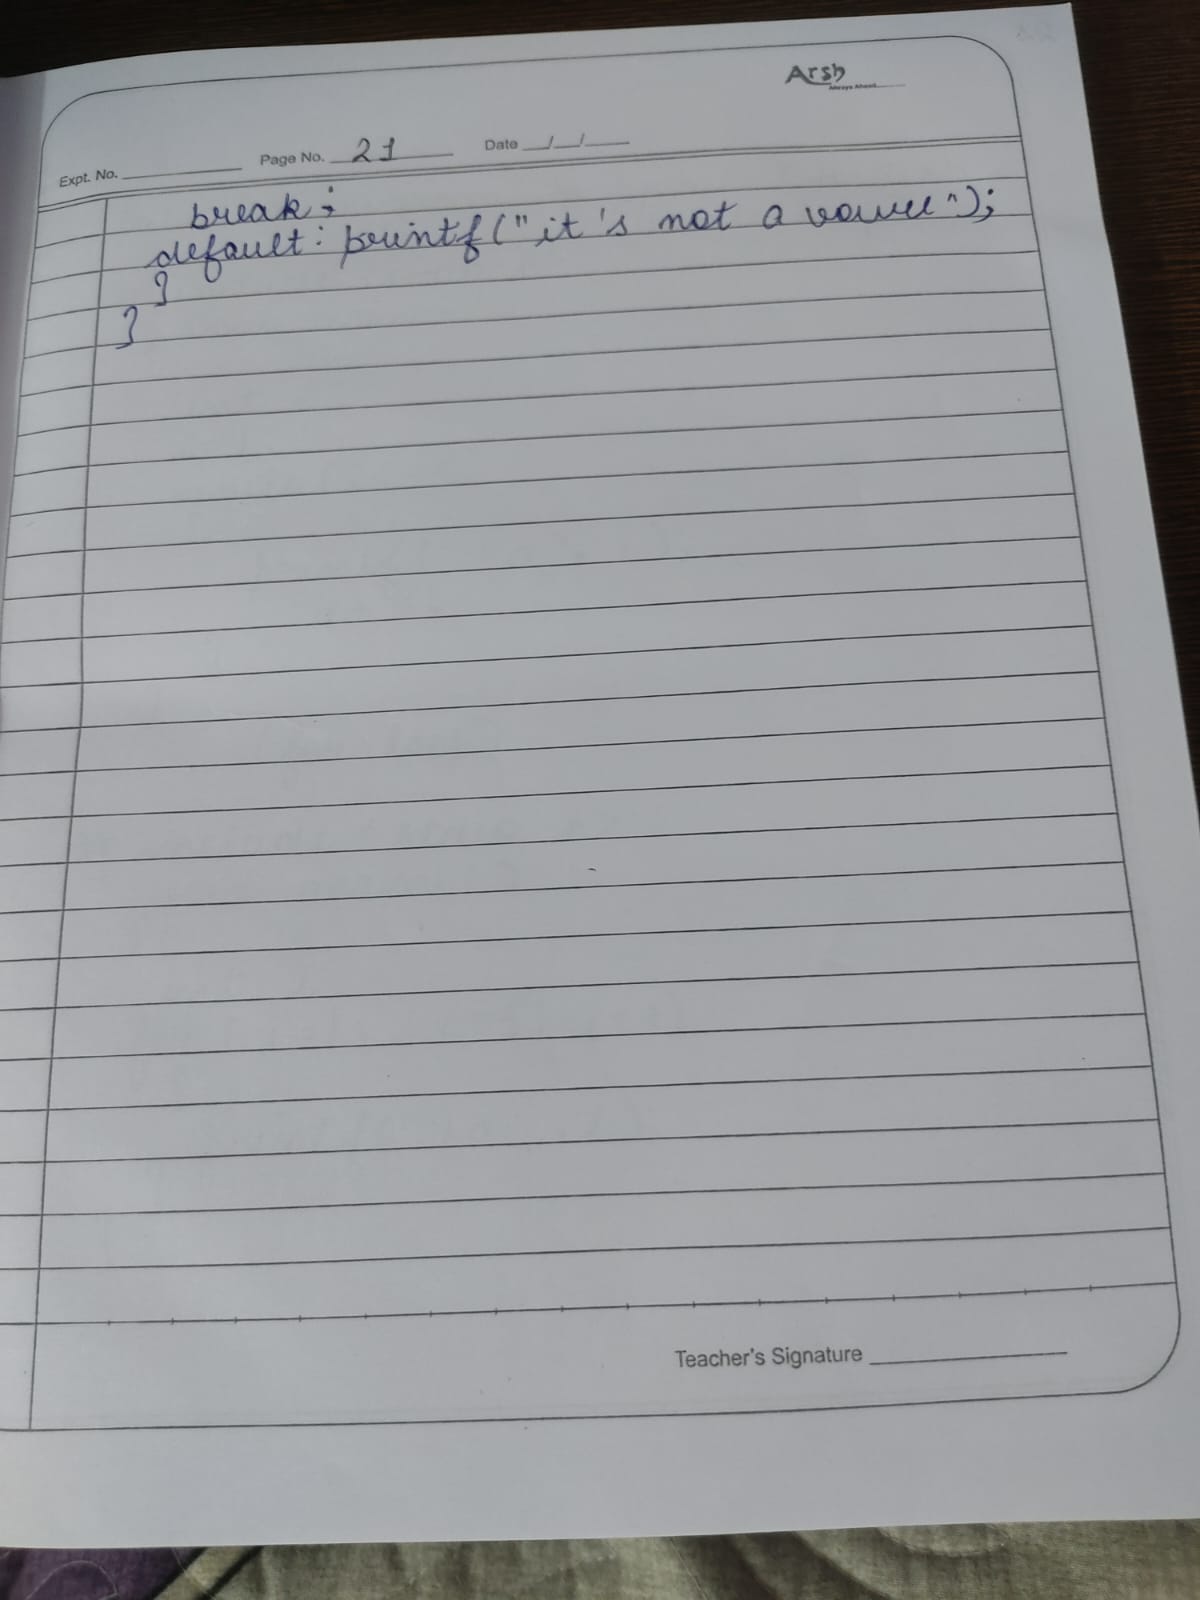 Arsh
Always Ahead......
Expt. No. Page No. 21 Date / /
break;
default: printf("it's not a vowel");
}
}
Teacher's Signature